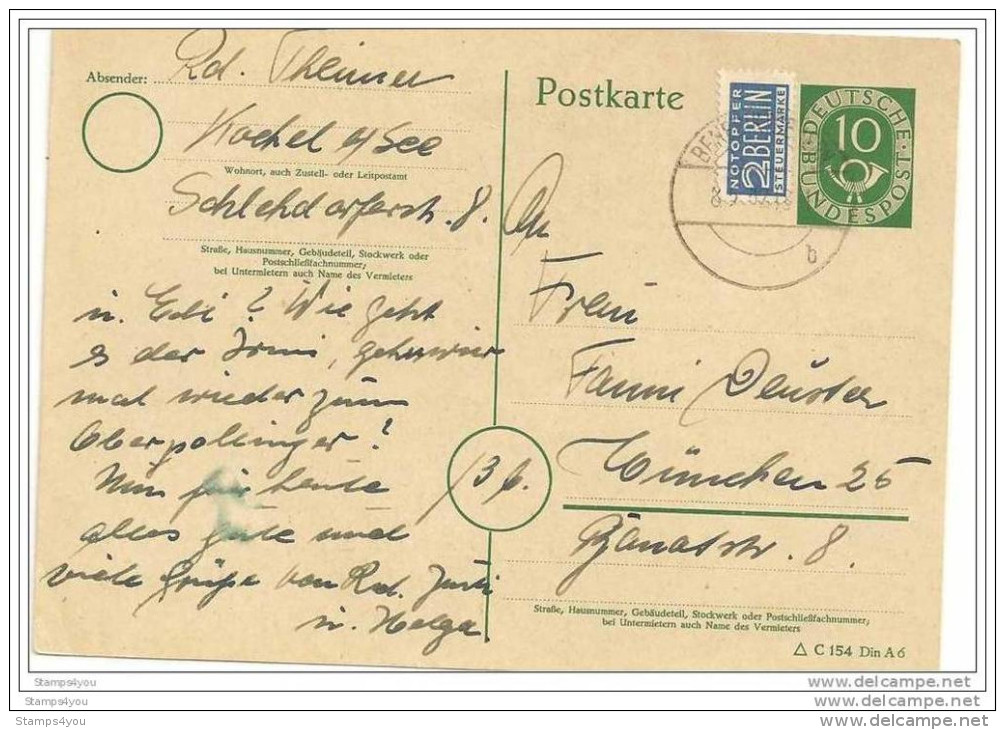 Absender: Rd. Theimer
Kochel a/See
Wohnort, auch Zustell- oder Leitpostamt
Schlehdorferstr. 8.
Straße, Hausnummer, Gebäudeteil, Stockwerk oder
Postschließfachnummer;
bei Untermietern auch Name des Vermieters
u. Edi? Wie geht
es der Irmi, gehen wir
mal wieder zum
Oberpollinger?
Nun für heute
alles gute und
viele Grüße von Rd.
u. Helga.
Postkarte
NOTOPFER
2 BERLIN
STEUERMARKE
DEUTSCHE
10
BUNDESPOST
b
An
Frau
Fanni
13b.
München 25
Banatstr. 8.
Straße, Hausnummer, Gebäudeteil, Stockwerk oder Postschließfachnummer;
bei Untermietern auch Name des Vermieters
△ C 154 Din A 6
Stamps4you
www.delcampe.net
Stamps4you
www.delcampe.net
Stamps4you
www.delcampe.net